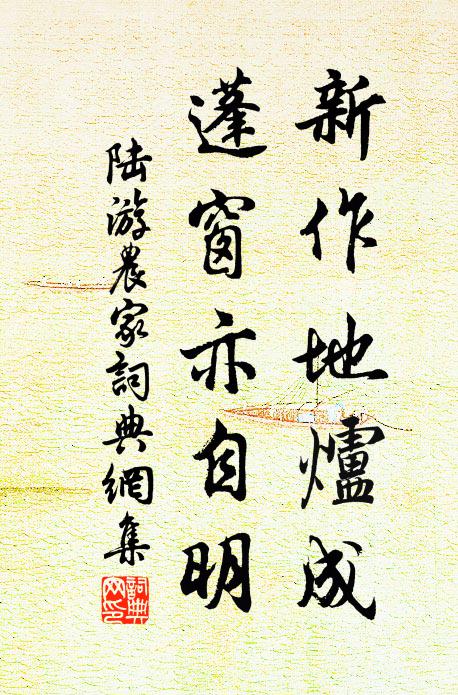 新作地爐成
蓬窗亦自明
陆游農家詞典網集
詞典網印